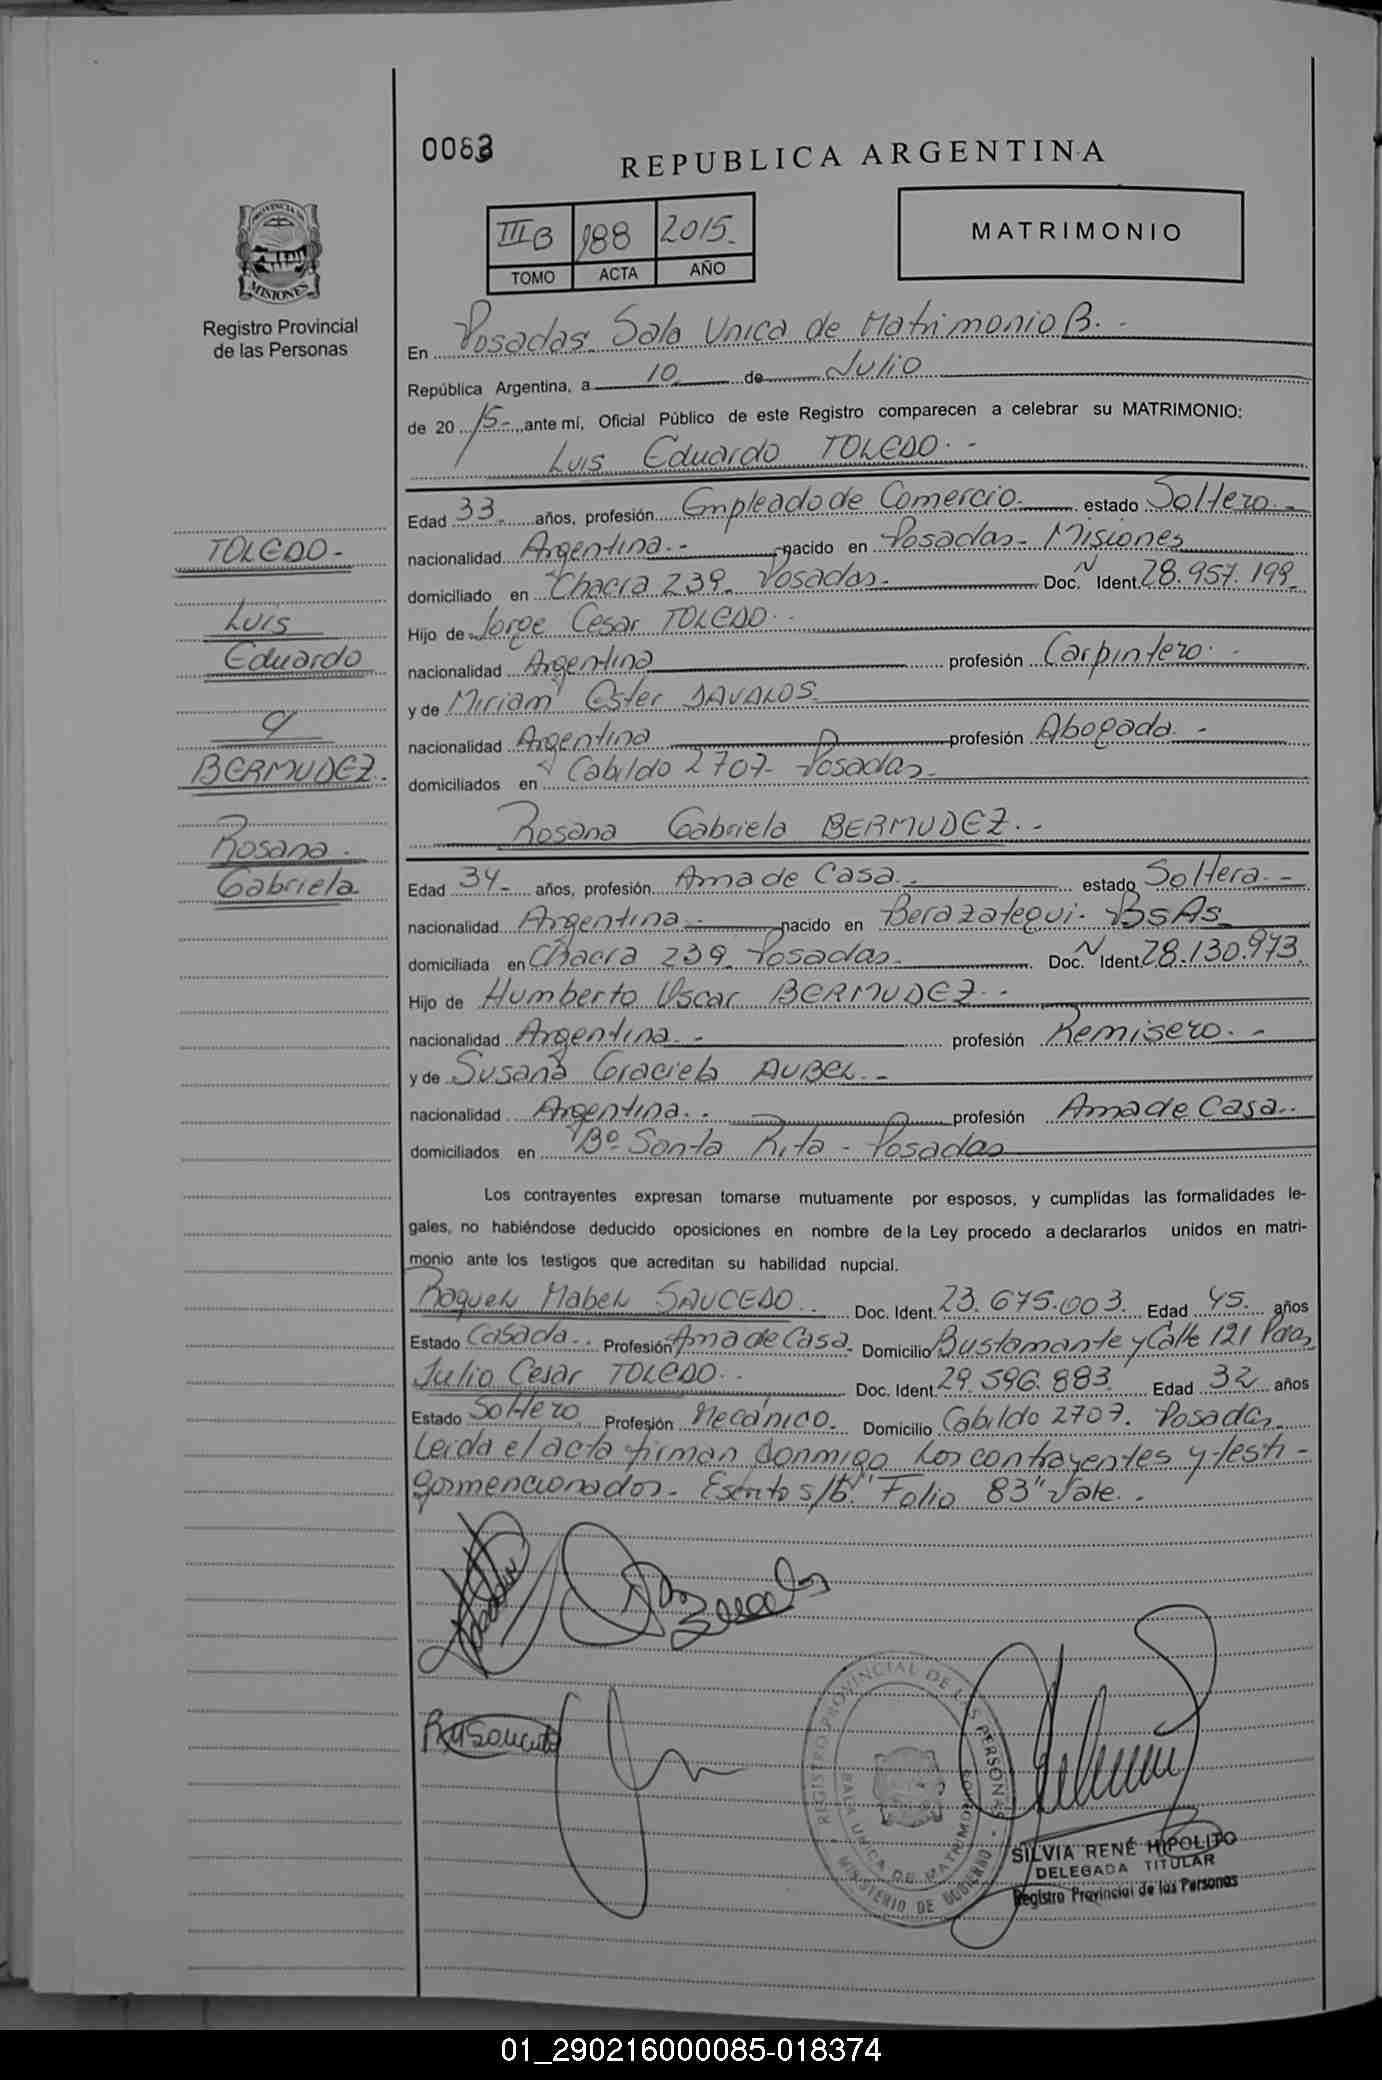 0083
REPUBLICA ARGENTINA
PROVINCIA DE
MISIONES
Registro Provincial
de las Personas
III B 188 2015.
TOMO ACTA AÑO
MATRIMONIO
En Posadas Sala Unica de Matrimonio B.-
República Argentina, a 10 de Julio
de 20 15- ante mí, Oficial Público de este Registro comparecen a celebrar su MATRIMONIO:
Luis Eduardo TOLEDO.-
Edad 33 años, profesión Empleado de Comercio. estado Soltero.-
nacionalidad Argentina.- nacido en Posadas- Misiones
domiciliado en Chacra 239- Posadas.- Doc. N Ident. 28.957.199.
Hijo de Jorge Cesar TOLEDO.-
nacionalidad Argentina profesión Carpintero.-
y de Miriam Ester DAVALOS.
nacionalidad Argentina profesión Abogada.-
domiciliados en Cabildo 2707- Posadas.
Rosana Gabriela BERMUDEZ.-
Edad 34- años, profesión Ama de Casa.- estado Soltera.-
nacionalidad Argentina.- nacido en Berazategui- BsAs
domiciliada en Chacra 239- Posadas. Doc. N Ident. 28.130.973.
Hijo de Humberto Oscar BERMUDEZ.-
nacionalidad Argentina.- profesión Remisero.-
y de Susana Graciela AUBEL.-
nacionalidad Argentina.- profesión Ama de Casa.-
domiciliados en Bº Santa Rita - Posadas
Los contrayentes expresan tomarse mutuamente por esposos, y cumplidas las formalidades le-
gales, no habiéndose deducido oposiciones en nombre de la Ley procedo a declararlos unidos en matri-
monio ante los testigos que acreditan su habilidad nupcial.
Raquel Mabel SAUCEDO.. Doc. Ident. 23.675.003. Edad 45. años
Estado Casada.. Profesión Ama de Casa. Domicilio Bustamante y Calle 121 Pdas
Julio Cesar TOLEDO.. Doc. Ident. 29.596.883. Edad 32 años
Estado Soltero Profesión Mecánico. Domicilio Cabildo 2707. Posadas
Leída el acta firman conmigo los contrayentes y testi-
gos mencionados- Escrito s/b "Folio 83" Vale.-
TOLEDO-
Luis
Eduardo
c/
BERMUDEZ.
Rosana.
Gabriela
REGISTRO PROVINCIAL DE LAS PERSONAS
SALA UNICA DE MATRIMONIO
MINISTERIO DE GOBIERNO
SILVIA RENÉ HIPOLITO
DELEGADA TITULAR
Registro Provincial de las Personas
01_290216000085-018374